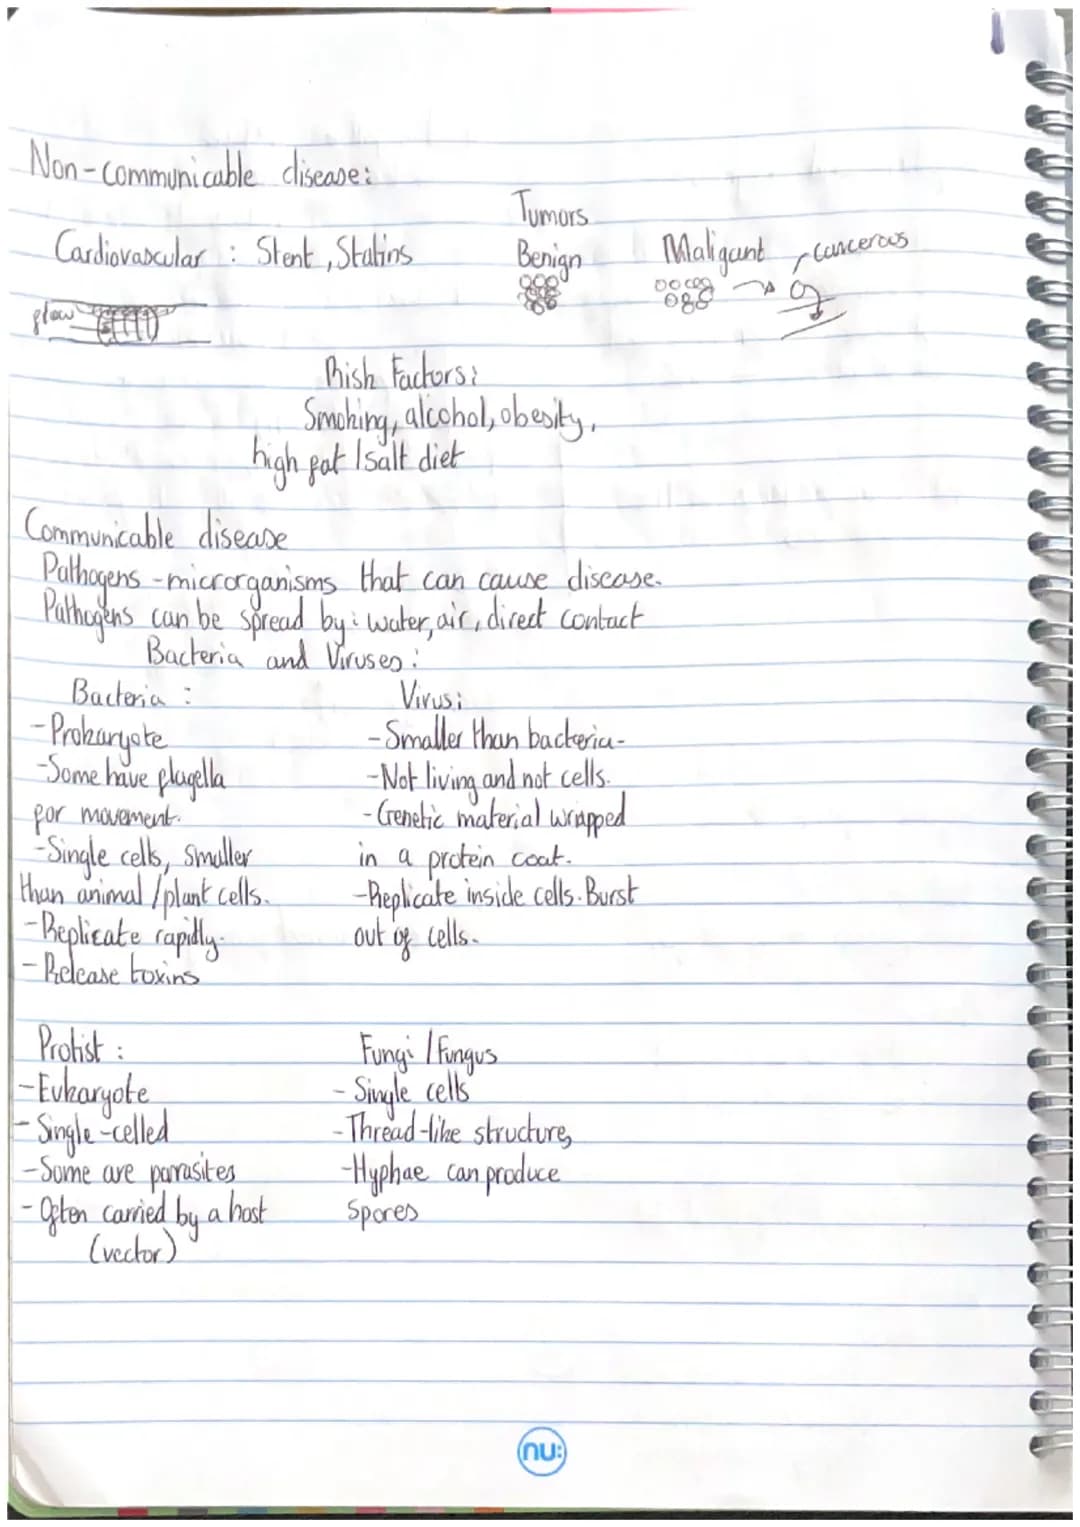 Non-communicable disease:
Tumors
Cardiovascular : Stent, Statins
Benign
Maligant
cancerous
flow
Risk Factors:
Smoking, alcohol, obesity,
high fat / salt diet
Communicable disease
Pathogens - microrganisms that can cause disease.
Pathogens can be spread by: water, air, direct contact
Bacteria and Viruses:
Bacteria :
- Prokaryote
- Some have flagella
for movement.
- Single cells, smaller
than animal / plant cells.
- Replicate rapidly.
- Release toxins
Virus:
- Smaller than bacteria-
- Not living and not cells.
- Genetic material wrapped
in a protein coat.
- Replicate inside cells. Burst
out of cells.
Protist :
- Eukaryote
- Single-celled
- Some are parasites
- Often carried by a host
(vector)
Fungi / Fungus
- Single cells
- Thread-like structure,
- Hyphae can produce
Spores
nu: